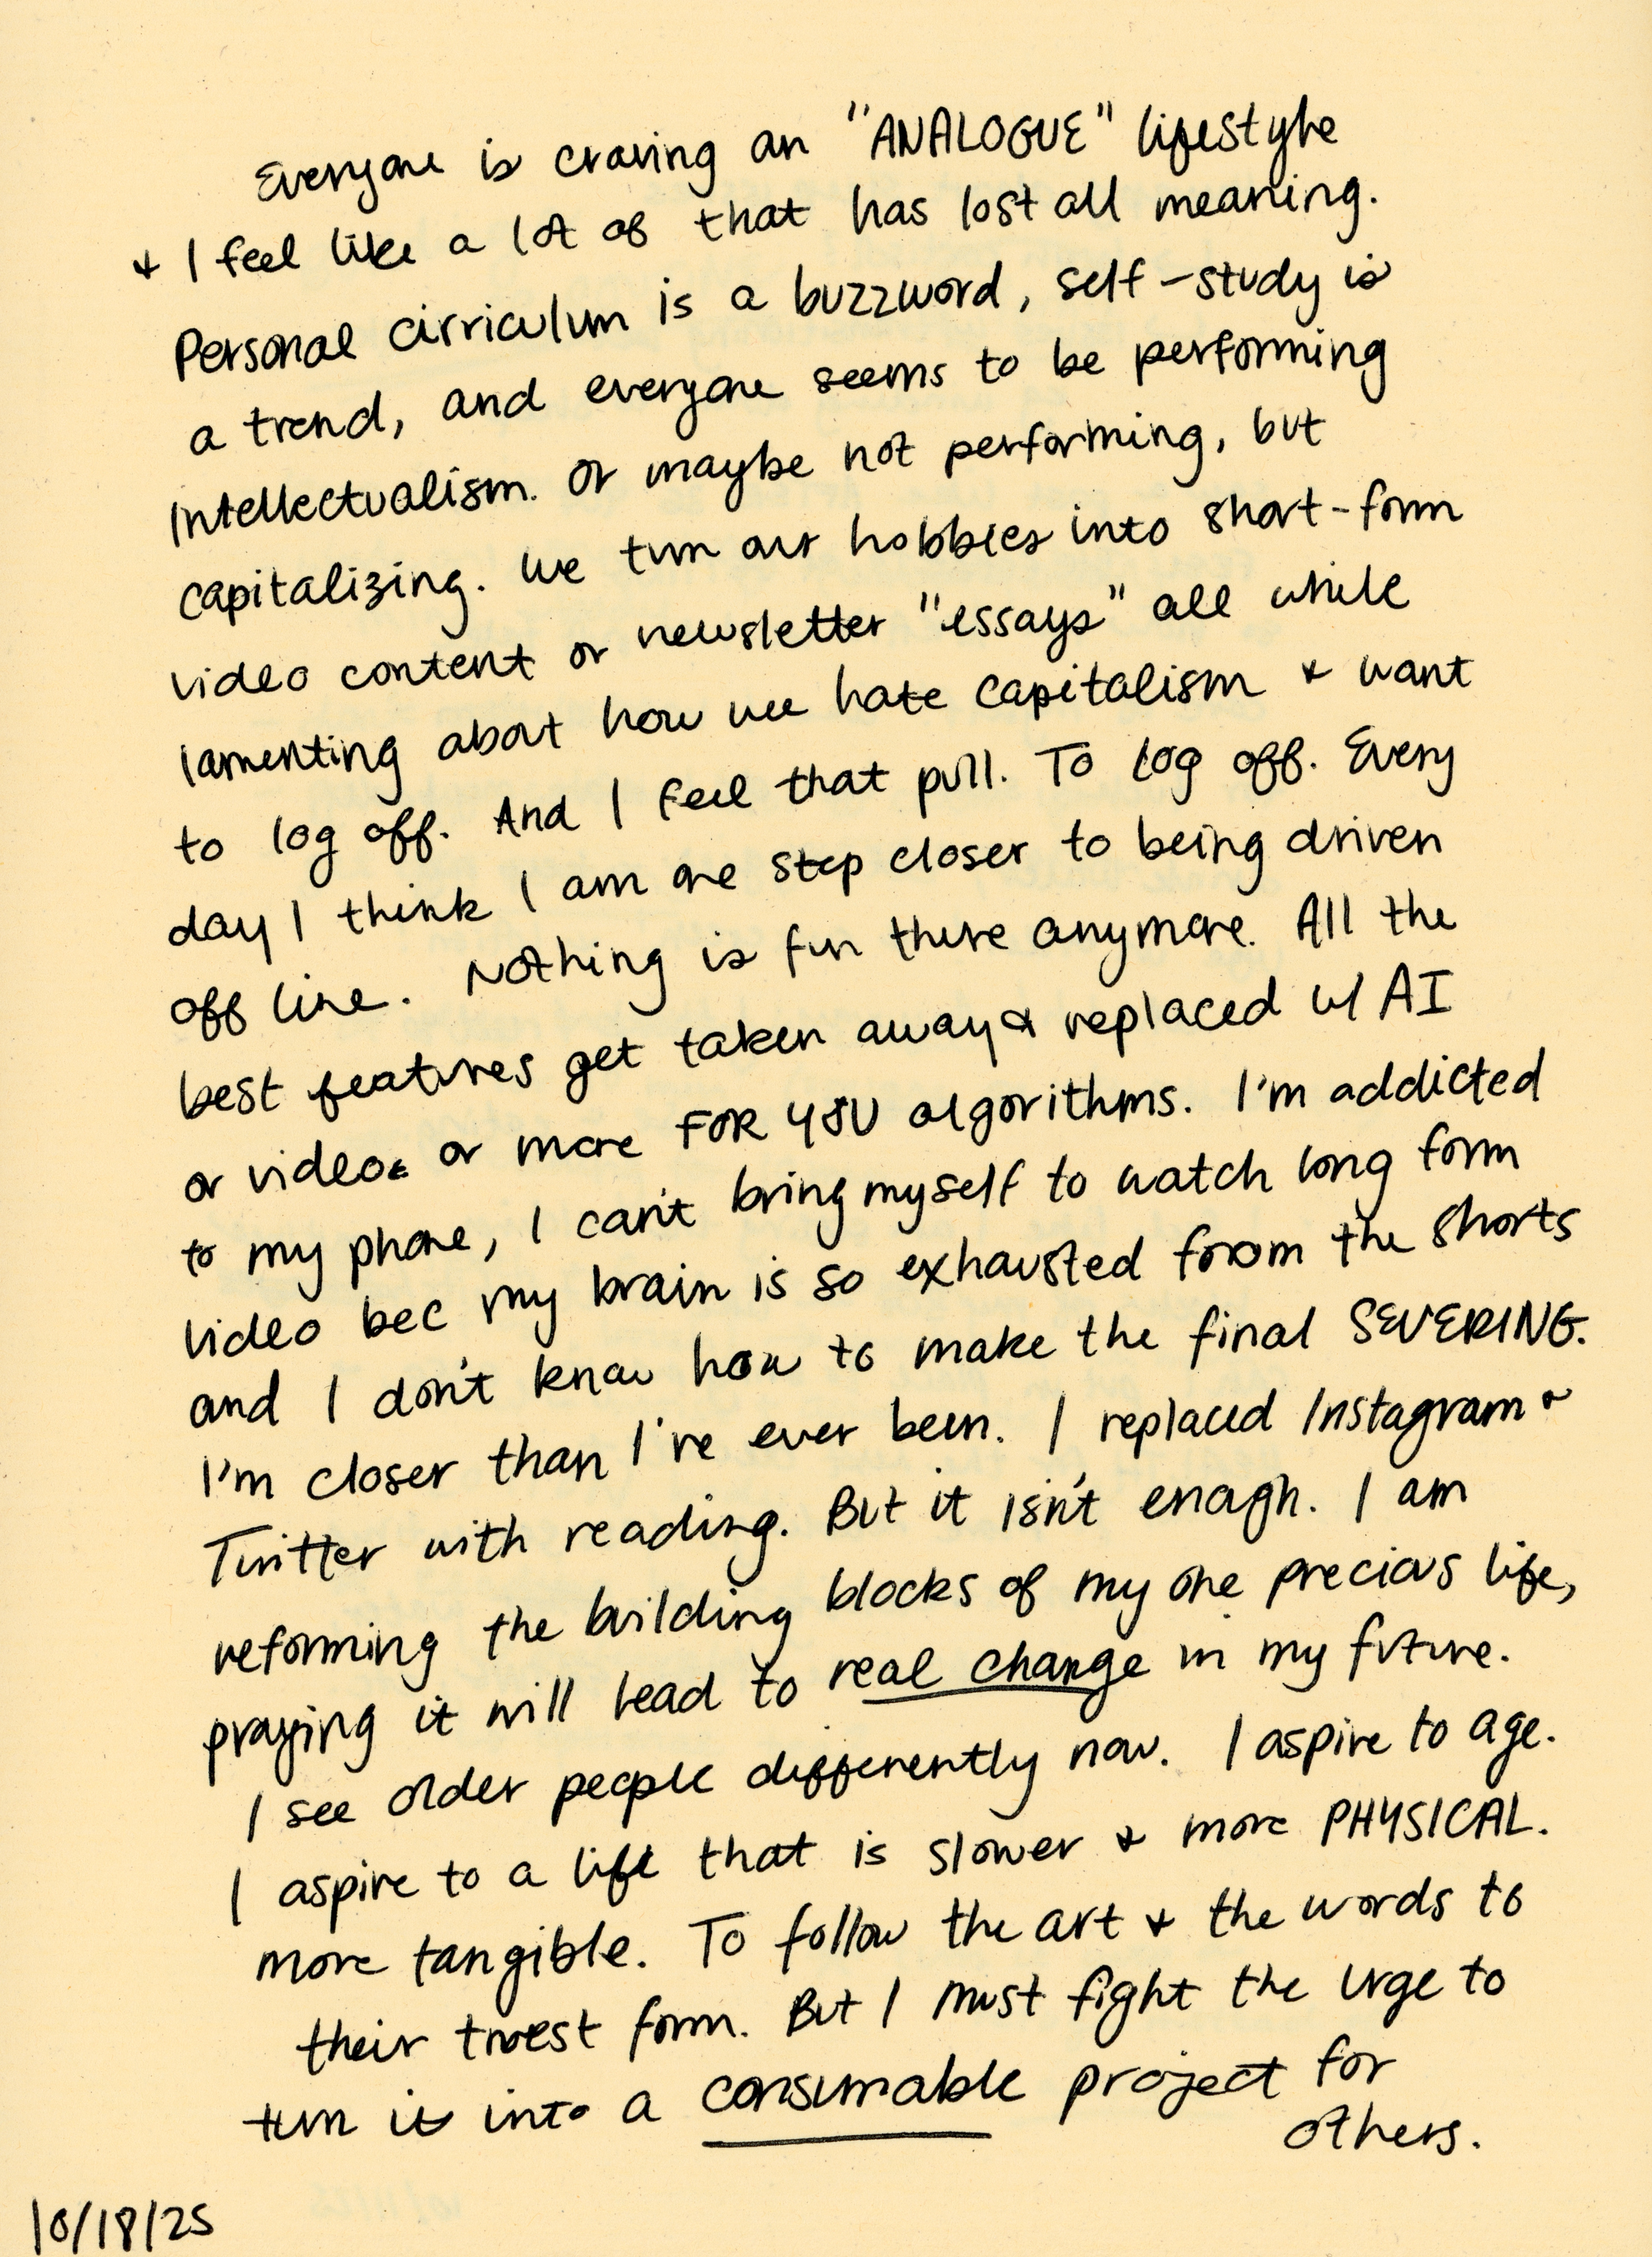 Everyone is craving an "ANALOGUE" lifestyle
& I feel like a lot of that has lost all meaning.
Personal cirriculum is a buzzword, self-study is
a trend, and everyone seems to be performing
intellectualism. Or maybe not performing, but
capitalizing. We turn our hobbies into short-form
video content or newsletter "essays" all while
lamenting about how we hate capitalism & want
to log off. And I feel that pull. To log off. Every
day I think I am one step closer to being driven
off line. Nothing is fun there anymore. All the
best features get taken away & replaced w/ AI
or videos or more FOR YOU algorithms. I'm addicted
to my phone, I can't bring myself to watch long form
video bec my brain is so exhausted from the shorts
and I don't know how to make the final SEVERING.
I'm closer than I've ever been. I replaced Instagram &
Twitter with reading. But it isn't enough. I am
reforming the building blocks of my one precious life,
praying it will lead to real change in my future.
I see older people differently now. I aspire to age.
I aspire to a life that is slower & more PHYSICAL.
more tangible. To follow the art & the words to
their truest form. But I must fight the urge to
turn it into a consumable project for
others.
10/18/25